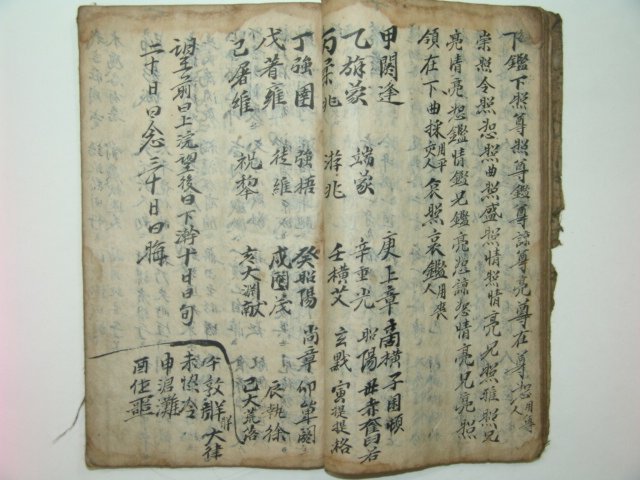 下鑑下照尊照尊鑑尊諒尊亮尊在尊恕用尊人
崇照令照恕照曲照盛照情照情亮兄照雅照兄
亮情亮恕鑑情鑑兄鑑亮恕諒恕情亮兄亮照
領在下曲採用平交人哀照哀鑑用喪人
甲閼逢
乙旃蒙 端蒙
丙柔兆 游兆
丁強圉 強梧
戊著雍 徒維
己屠維 祝犂
庚上章 商橫
辛重光 昭陽
壬橫艾 玄黓
癸昭陽 尚章
子困頓
丑赤奮若
寅攝提格
卯單閼
辰執徐
巳大荒落
午敦牂 大律
未協洽
申涒灘
酉作噩
戌閹茂
亥大淵献
望前曰上浣望後曰下澣十日曰旬
二十日曰念三十日曰晦